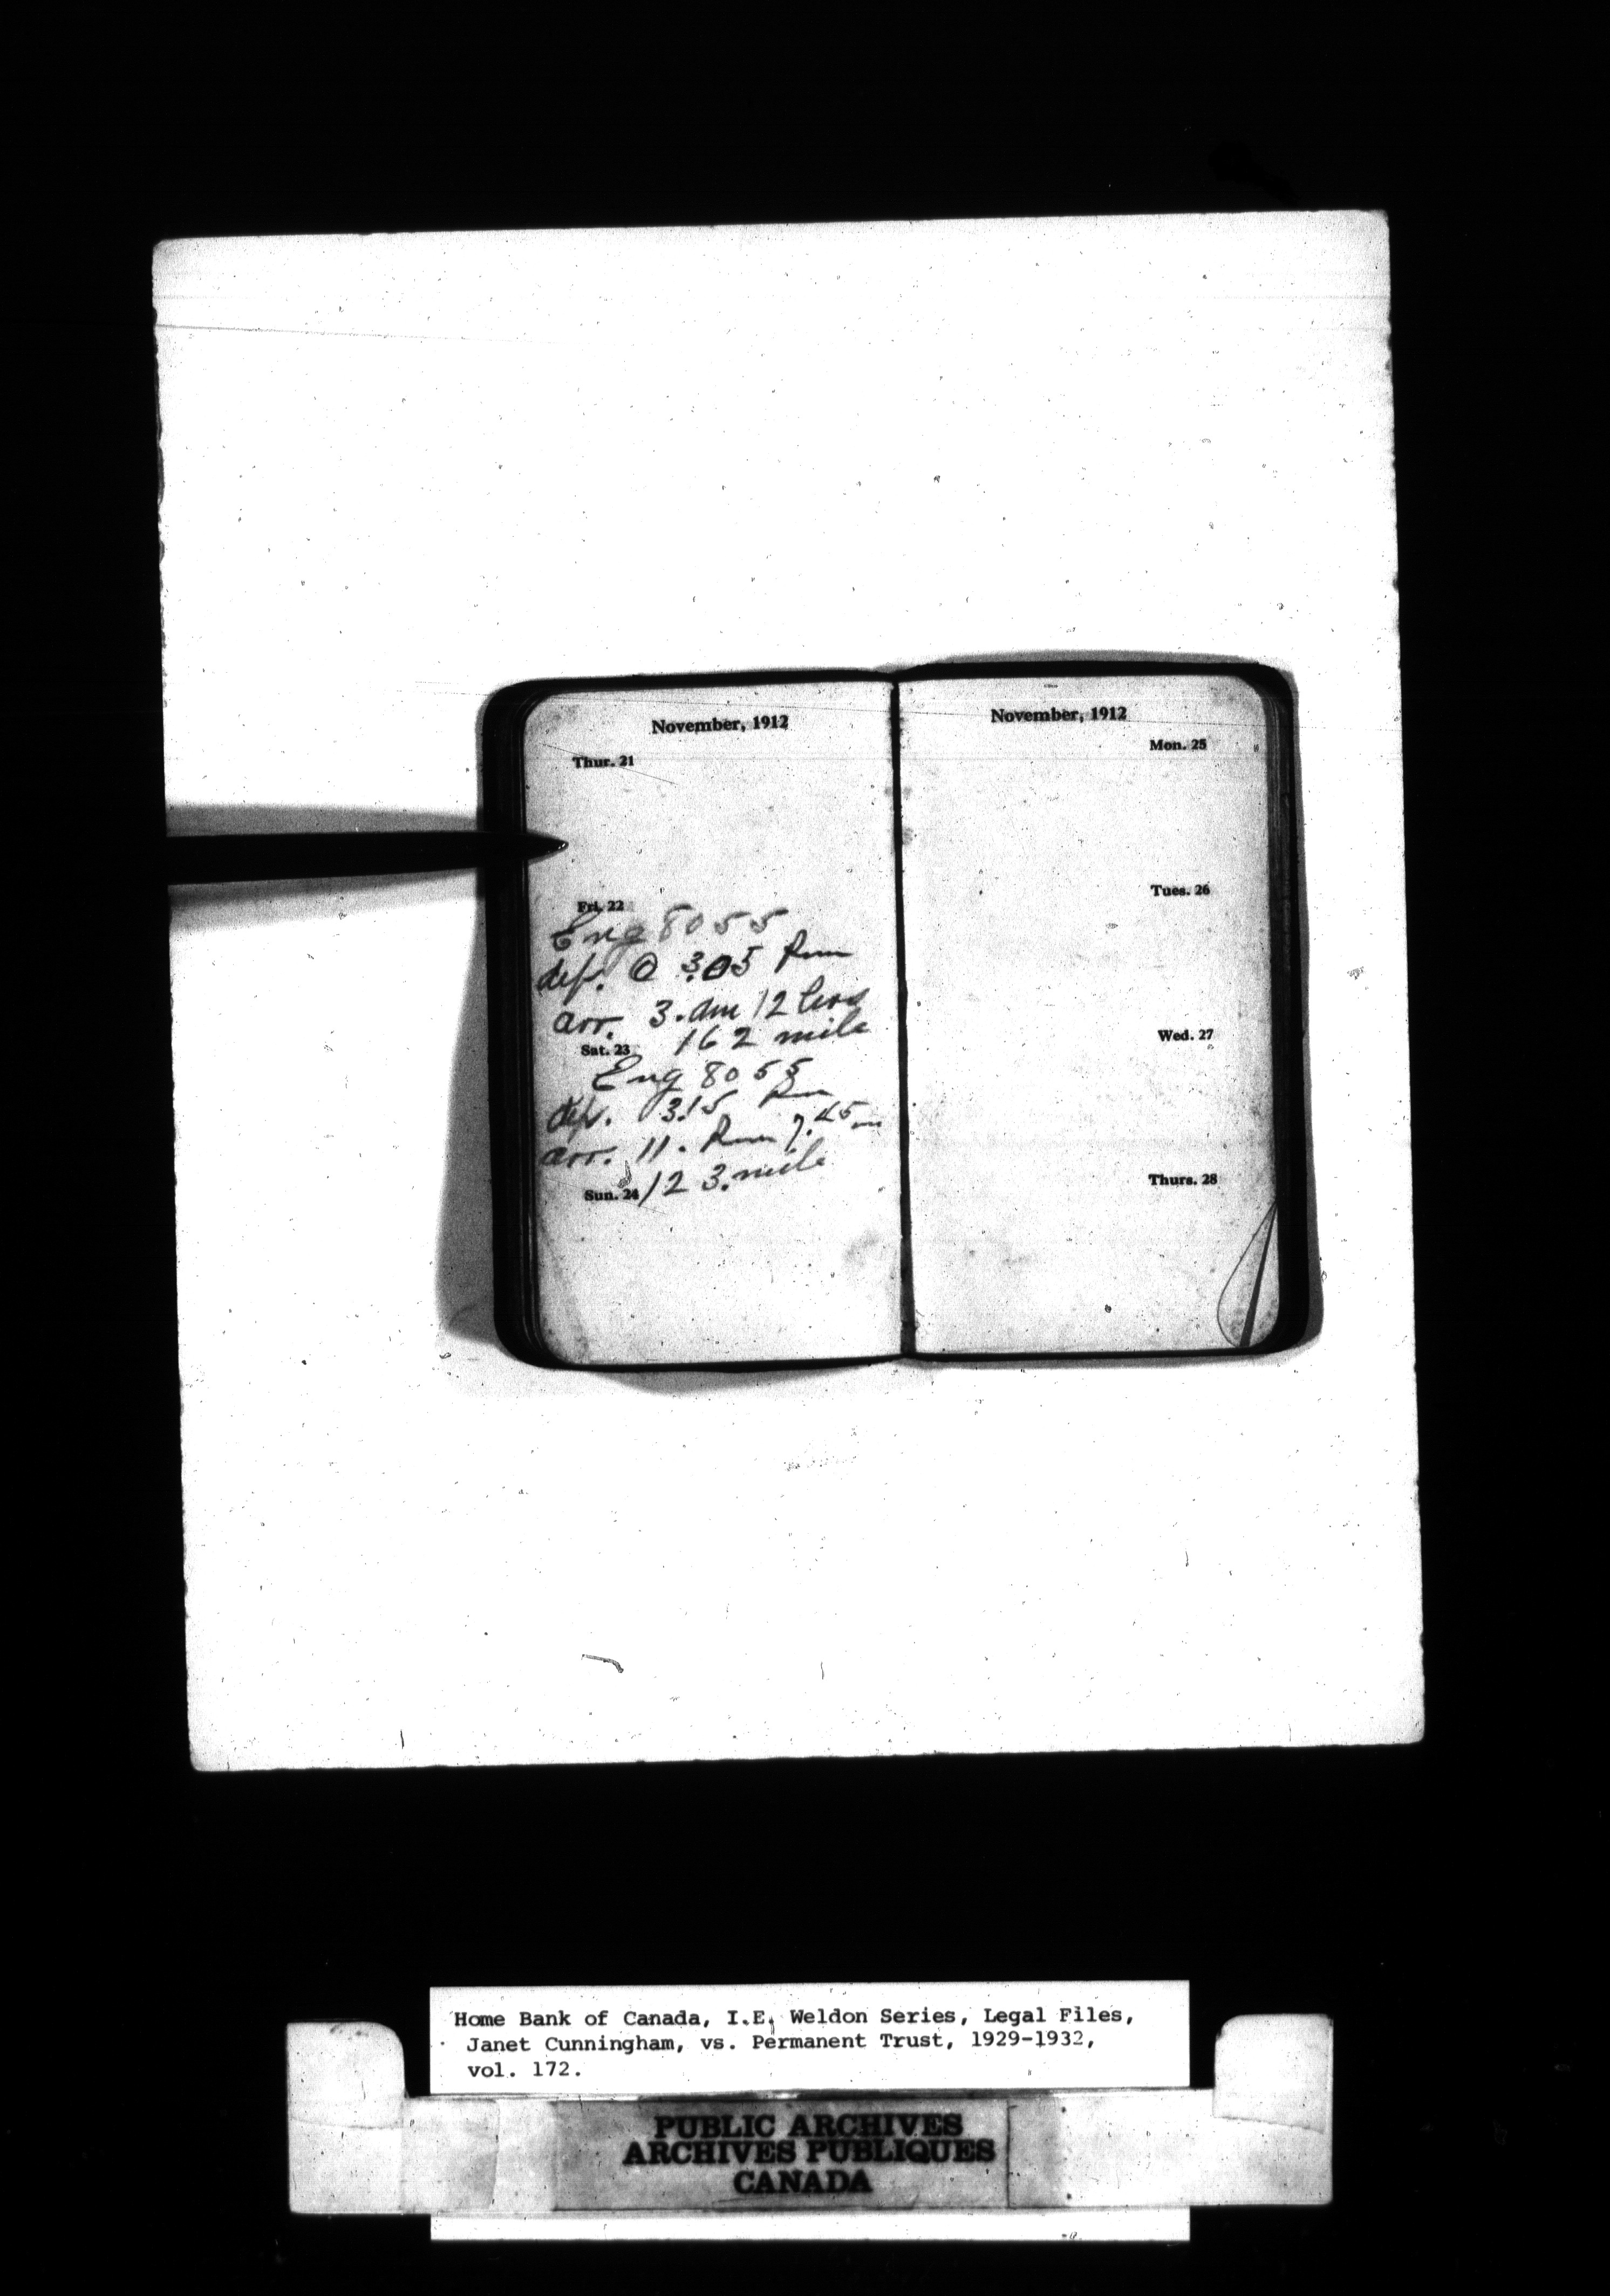 November, 1912
Thur. 21
Fri. 22
Eng 8055
dep. @ 3.05 Pm
arr. 3. am 12 hrs
162 mile
Sat. 23
Eng 8055
dep. 3.15 Pm
arr. 11. Pm 7.45 m
123. mile
Sun. 24
November, 1912
Mon. 25
Tues. 26
Wed. 27
Thurs. 28
Home Bank of Canada, I.E. Weldon Series, Legal Files,
Janet Cunningham, vs. Permanent Trust, 1929-1932,
vol. 172.
PUBLIC ARCHIVES
ARCHIVES PUBLIQUES
CANADA